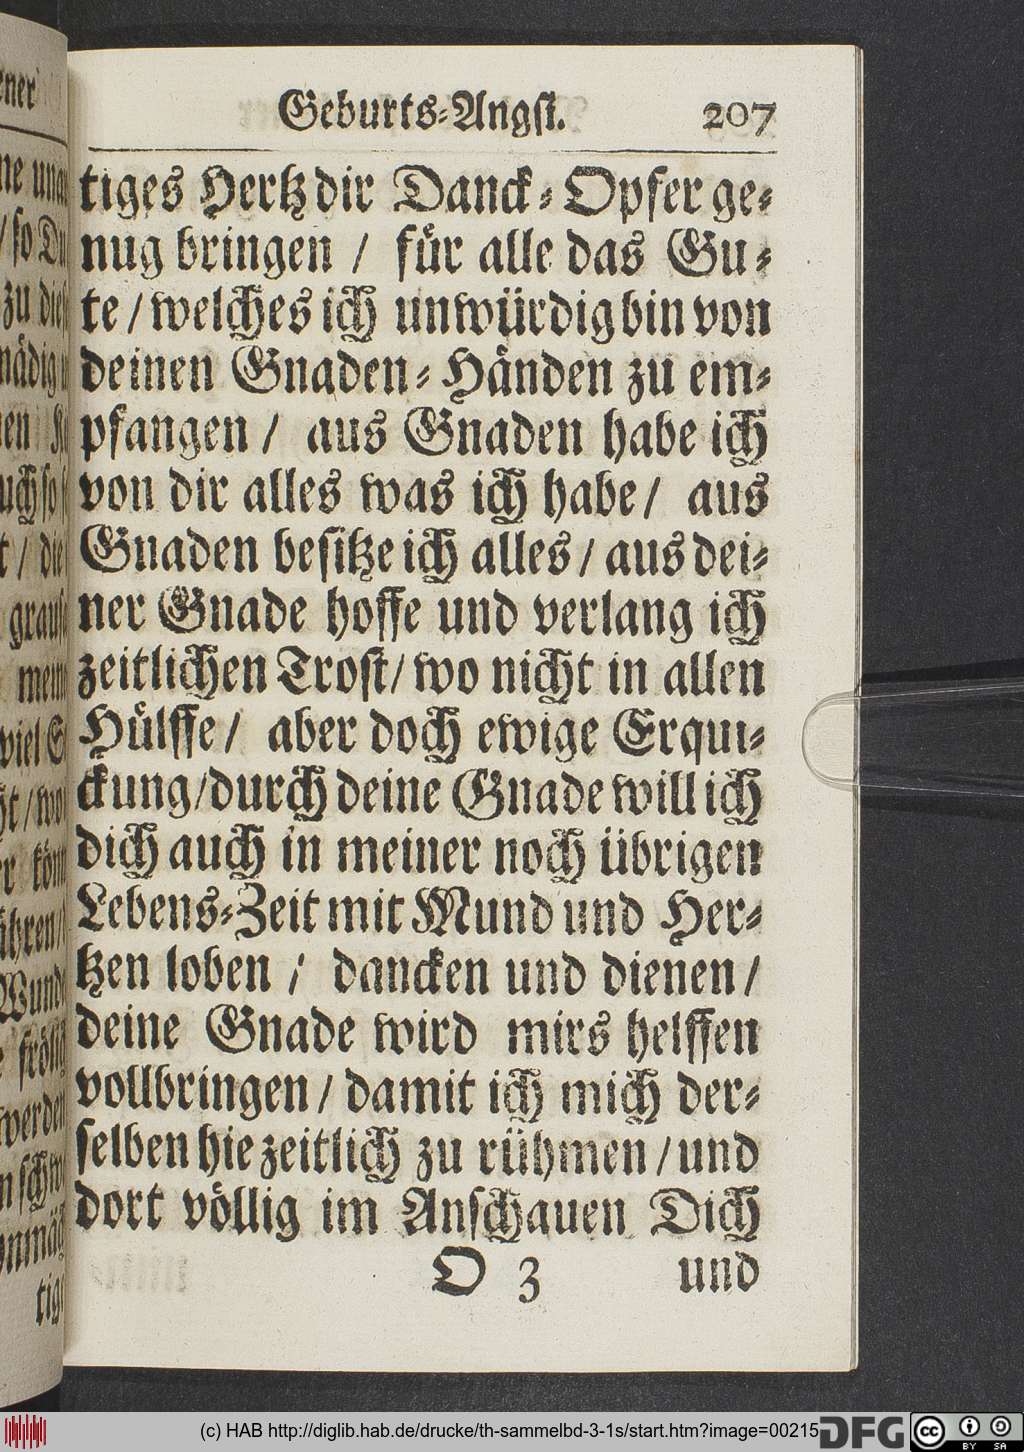 Geburts-Angst. 207
tiges Hertz dir Danck-Opfer ge-
nug bringen / für alle das Gu-
te / welches ich unwürdig bin von
deinen Gnaden-Händen zu em-
pfangen / aus Gnaden habe ich
von dir alles was ich habe / aus
Gnaden besitze ich alles / aus dei-
ner Gnade hoffe und verlang ich
zeitlichen Trost / wo nicht in allen
Hülffe / aber doch ewige Erqui-
ckung / durch deine Gnade will ich
dich auch in meiner noch übrigen
Lebens-Zeit mit Mund und Her-
tzen loben / dancken und dienen /
deine Gnade wird mirs helffen
vollbringen / damit ich mich der-
selben hie zeitlich zu rühmen / und
dort völlig im Anschauen Dich
O 3 und
(c) HAB http://diglib.hab.de/drucke/th-sammelbd-3-1s/start.htm?image=00215
DFG
cc BY SA